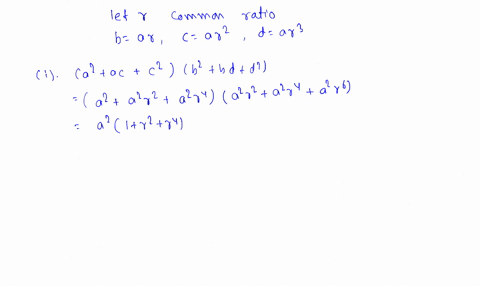 let r common ratio
b= ar, c= ar², d= ar³
(i). (a²+ac+c²) (b²+bd+d²)
=(a²+a²r²+a²r⁴) (a²r²+a²r⁴+a²r⁶)
= a²(1+r²+r⁴)